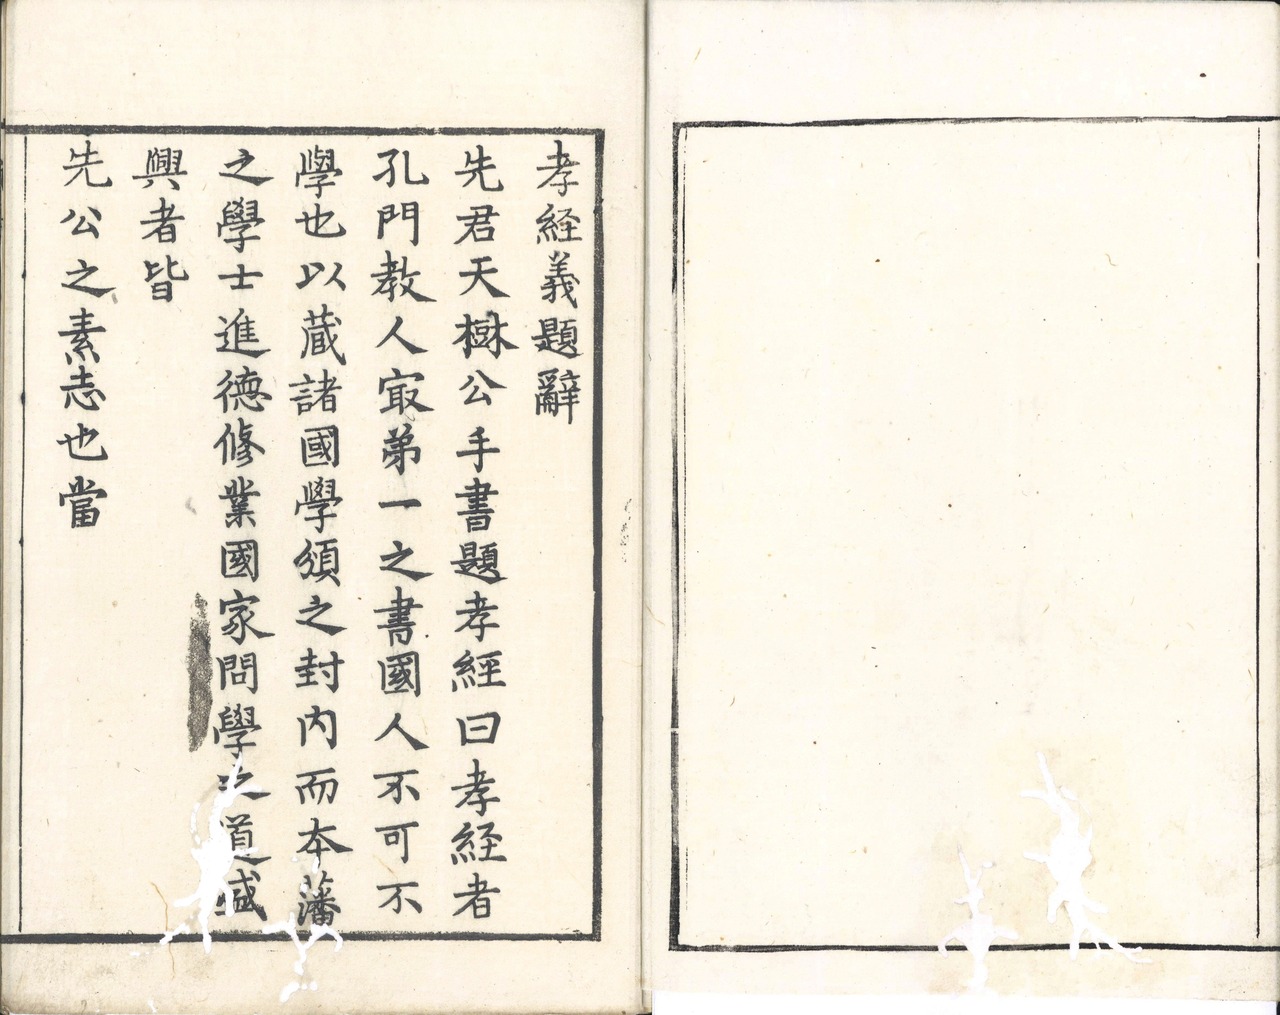 孝経義題辭
先君天樹公手書題孝經曰孝経者
孔門教人㝡苐一之書國人不可不
學也以蔵諸國學頒之封内而本藩
之學士進德修業國家問學之道盛
興者皆
先公之素志也當